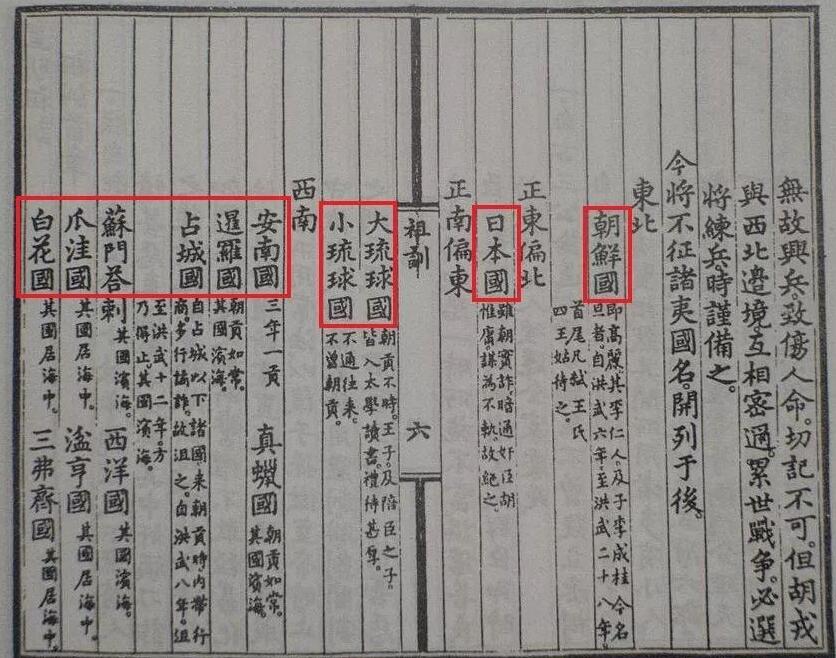 無故興兵。致傷人命。切記不可。但胡戎
與西北邊境。互相密邇。累世戰爭。必選
將練兵。時謹備之。
今將不征諸夷國名。開列于後。
東北
朝鮮國
即高麗其李仁人。及子李成桂今名
旦者。自洪武六年。至洪武二十八年。
首尾凡弒王氏
四王姑待之。
正東偏北
日本國
雖朝實詐暗通奸臣胡
惟庸。謀為不軌。故絕之。
正南偏東
祖訓
六
大琉球國
朝貢不時。王子。及陪臣之子。
皆入太學讀書。禮待甚厚。
小琉球國
不通往來。
不曾朝貢。
西南
安南國
三年一貢
真蠟國
朝貢如常。
其國濱海。
暹羅國
朝貢如常。
其國濱海。
占城國
自占城以下諸國。來朝貢時。內帶行
商。多行譎詐。故沮之。自洪武八年。沮
至洪武十二年。方
乃得止。其國濱海。
蘇門荅剌
其國濱海。
西洋國
其國濱海。
爪洼國
其國居海中。
湓亨國
其國居海中。
白花國
其國居海中。
三弗齊國
其國居海中。